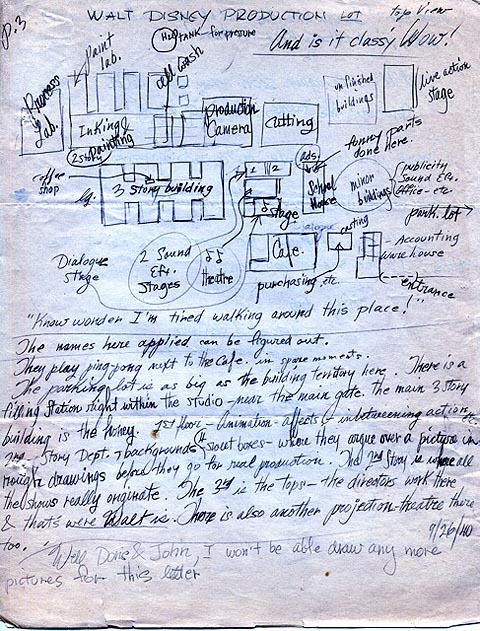 P.3
WALT DISNEY PRODUCTION LOT top View
And is it classy Wow!
H₂O TANK - for pressure
Paint lab.
cell wash
Process Lab.
Inking & painting
Production Camera
Cutting
un finished buildings
live action stage
funny parts done here.
2 story
Coffee shop
Lg.
3 Story building
1 2
stage
ads.
School House
minor buildings
publicity
Sound Effs.
Office - etc.
park. lot →
casting
Cafe.
Dialogue stage
2 Sound Eft. STAGES
theatre
purchasing, etc.
Accounting
ware house
entrance
"Know wonder I'm tired walking around this place!"
The names here applied can be figured out.
They play ping-pong next to the Cafe. in spare moments.
The parking lot is as big as the building territory here. There is a
filling station right within the studio - near the main gate. the main 3 story
building is the honey. 1st floor - Animation - affects & inbetweening action, etc.
2nd - Story Dept. & backgrounds & boxes - where they argue over a picture in
rough drawings before they go for real production. The 2nd Story is where all
the shows really originate. The 3rd is the tops - the directors work here
& thats were Walt is. There is also another projection-theatre there
too. 9/26/40
Well Doris & John, I won't be able draw any more
pictures for this letter